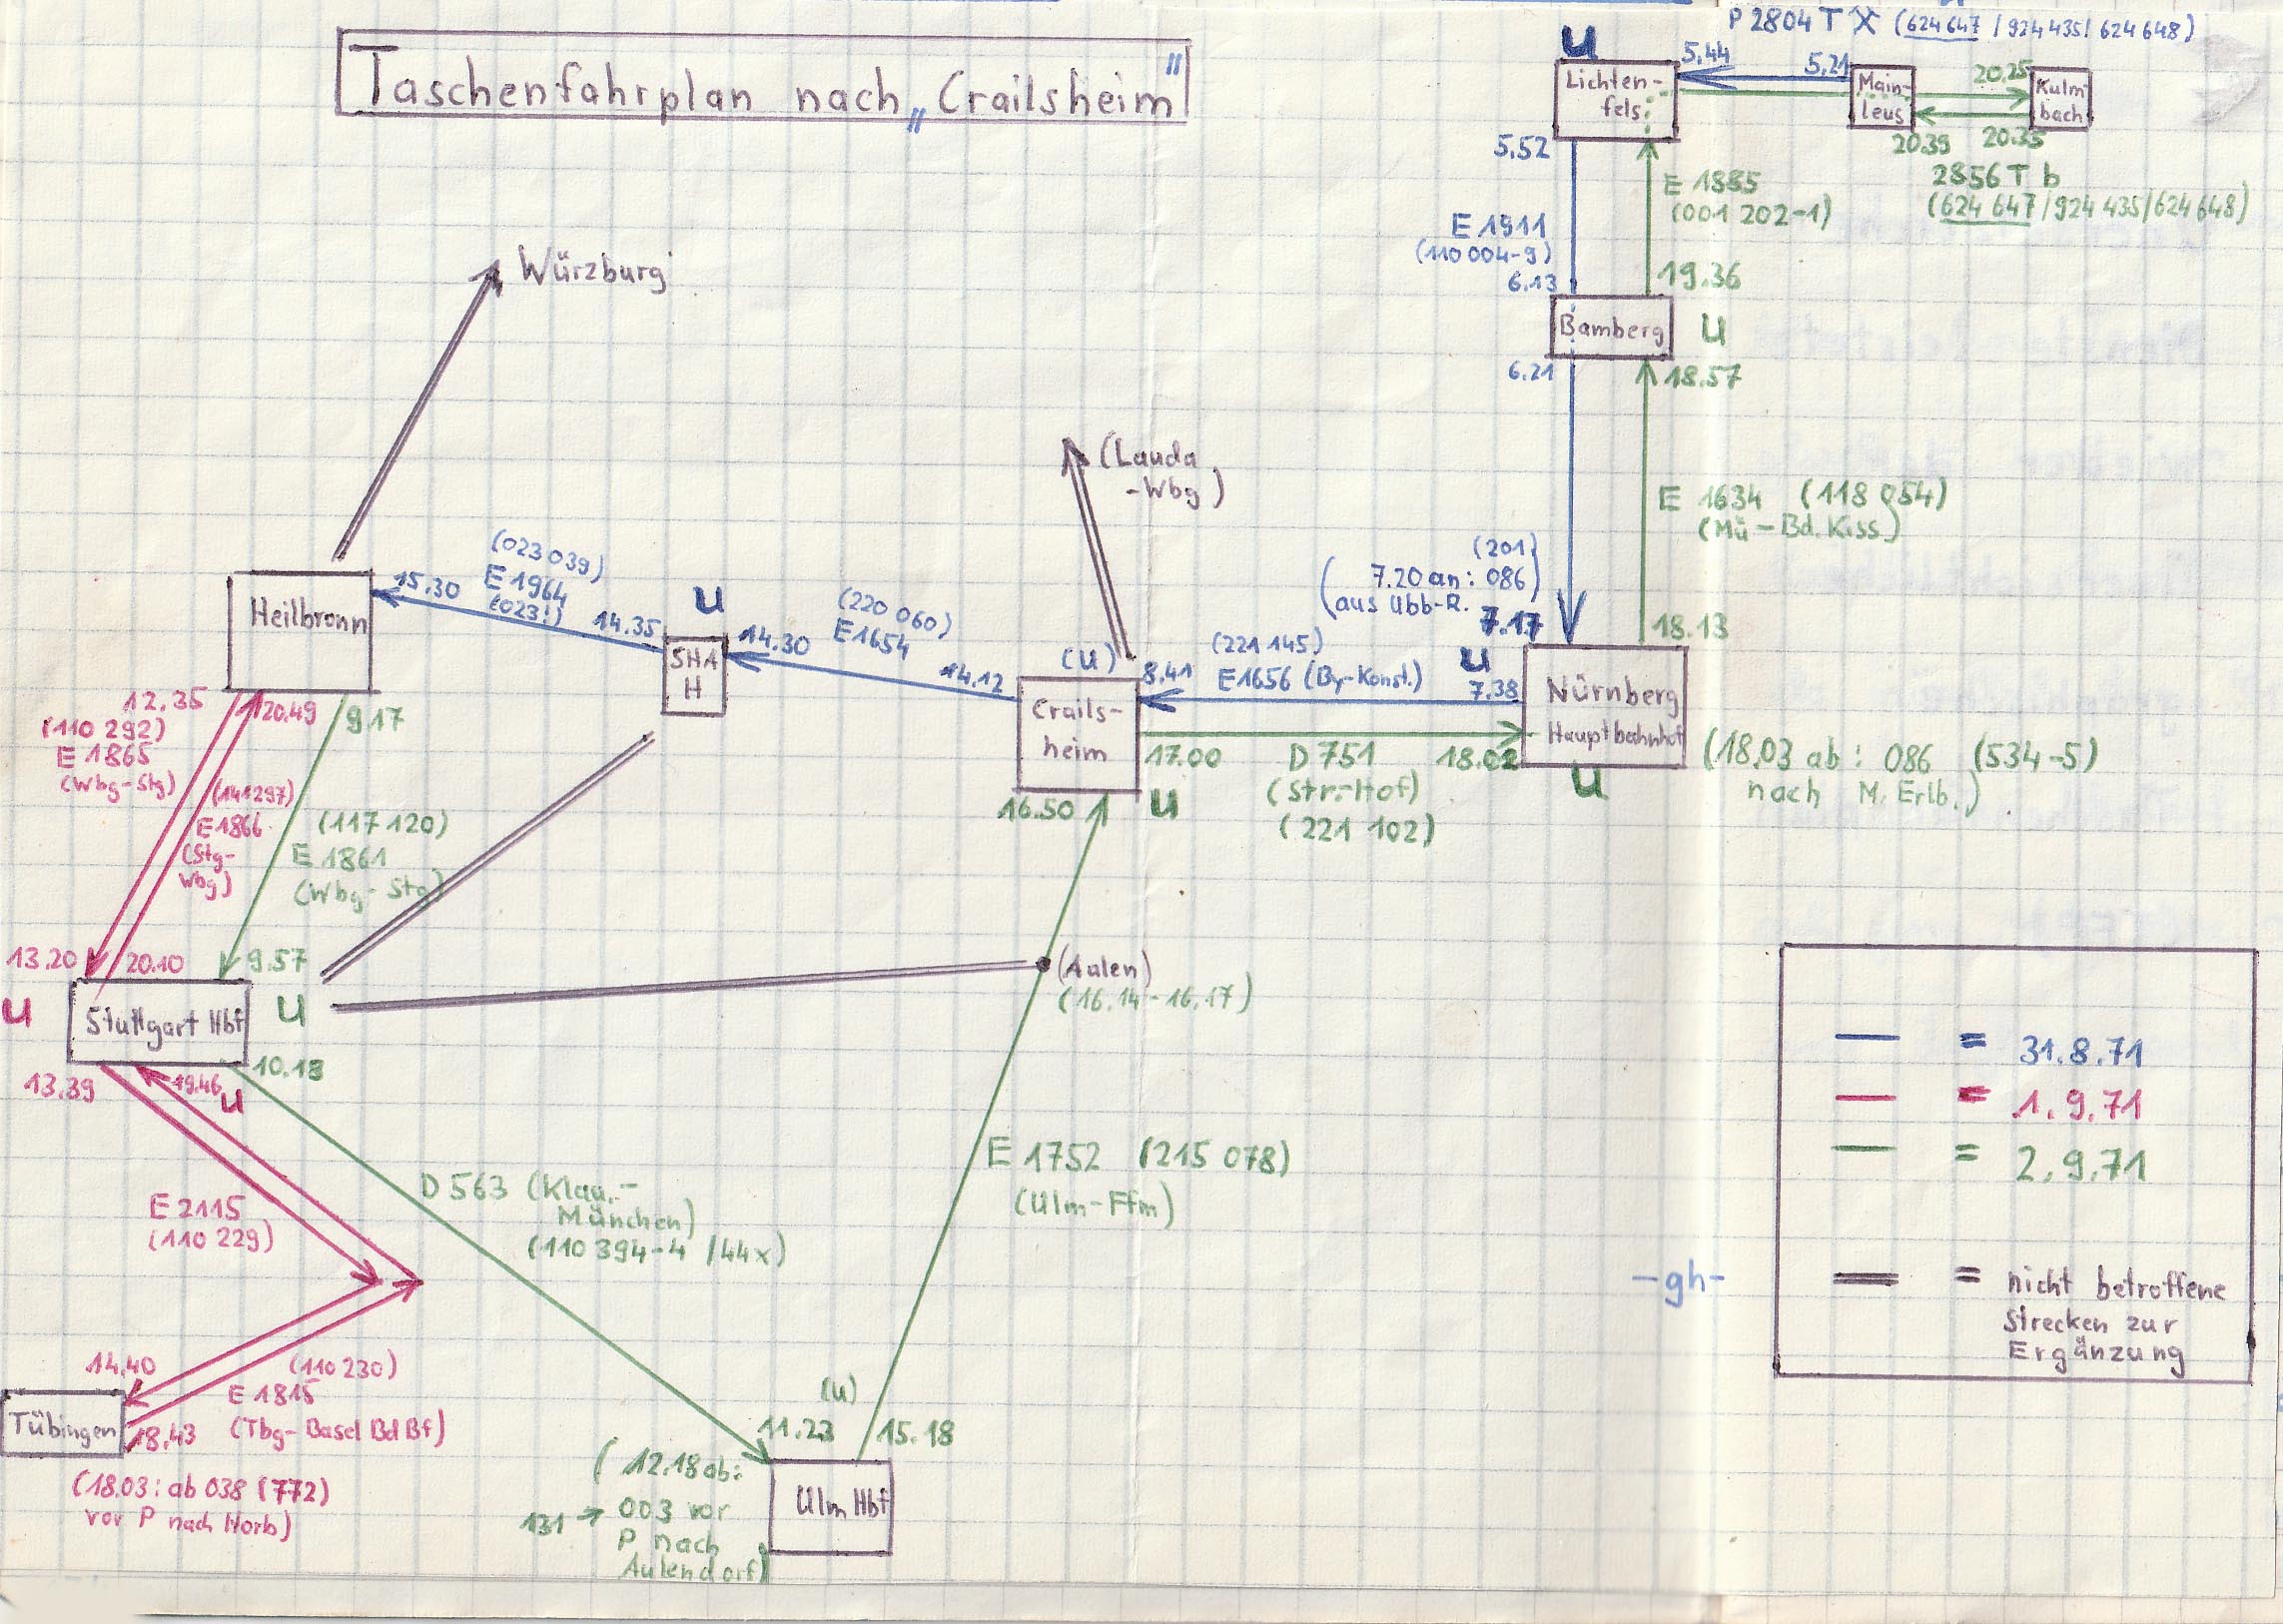 P 2804 T X (624 647 / 924 435 / 624 648)
Taschenfahrplan nach „Crailsheim"
U
Lichten-
fels
5.44
5.21
Main-
leus
20.25
Kulm-
bach
20.39
20.35
2856 T b
(624 647 / 924 435 / 624 648)
5.52
E 1885
(001 202-1)
E 1911
(110 004-9)
6.13
19.36
Bamberg
U
6.21
18.57
Würzburg
(Lauda
-Wbg)
E 1634 (118 054)
(Mü-Bd.Kiss.)
(201)
(7.20 an: 086)
aus Ubb-R.
7.17
18.13
Heilbronn
15.30
(023 039)
E 1964
(023!)
14.35
U
SHA
H
14.30
(220 060)
E 1654
14.12
(U)
Crails-
heim
8.41
(221 145)
E 1656 (By-Konst.)
U
7.38
Nürnberg
Hauptbahnhof
U
17.00
D 751
(Str.-Hof)
(221 102)
18.02
(18.03 ab: 086 (534-5)
nach M. Erlb.)
16.50
U
12.35
(110 292)
E 1865
(Wbg-Stg)
20.49
(141 297)
E 1866
(Stg-
Wbg)
9.17
(117 120)
E 1861
(Wbg-Stg)
13.20
20.10
9.57
U
Stuttgart Hbf
U
(Aalen)
(16.14-16.17)
13.39
19.46
U
10.18
E 2115
(110 229)
D 563 (Klag.-
München)
(110 394-4 / 44x)
E 1752 (215 078)
(Ulm-Ffm)
14.40
(110 230)
E 1815
(Tbg-Basel Bd Bf)
Tübingen
18.43
(18.03: ab 038 (772)
vor P nach Horb)
(U)
11.23
15.18
(12.18 ab:
131 → 003 vor
P nach
Aulendorf)
Ulm Hbf
-gh-
= 31.8.71
= 1.9.71
= 2.9.71
= nicht betroffene
Strecken zur
Ergänzung